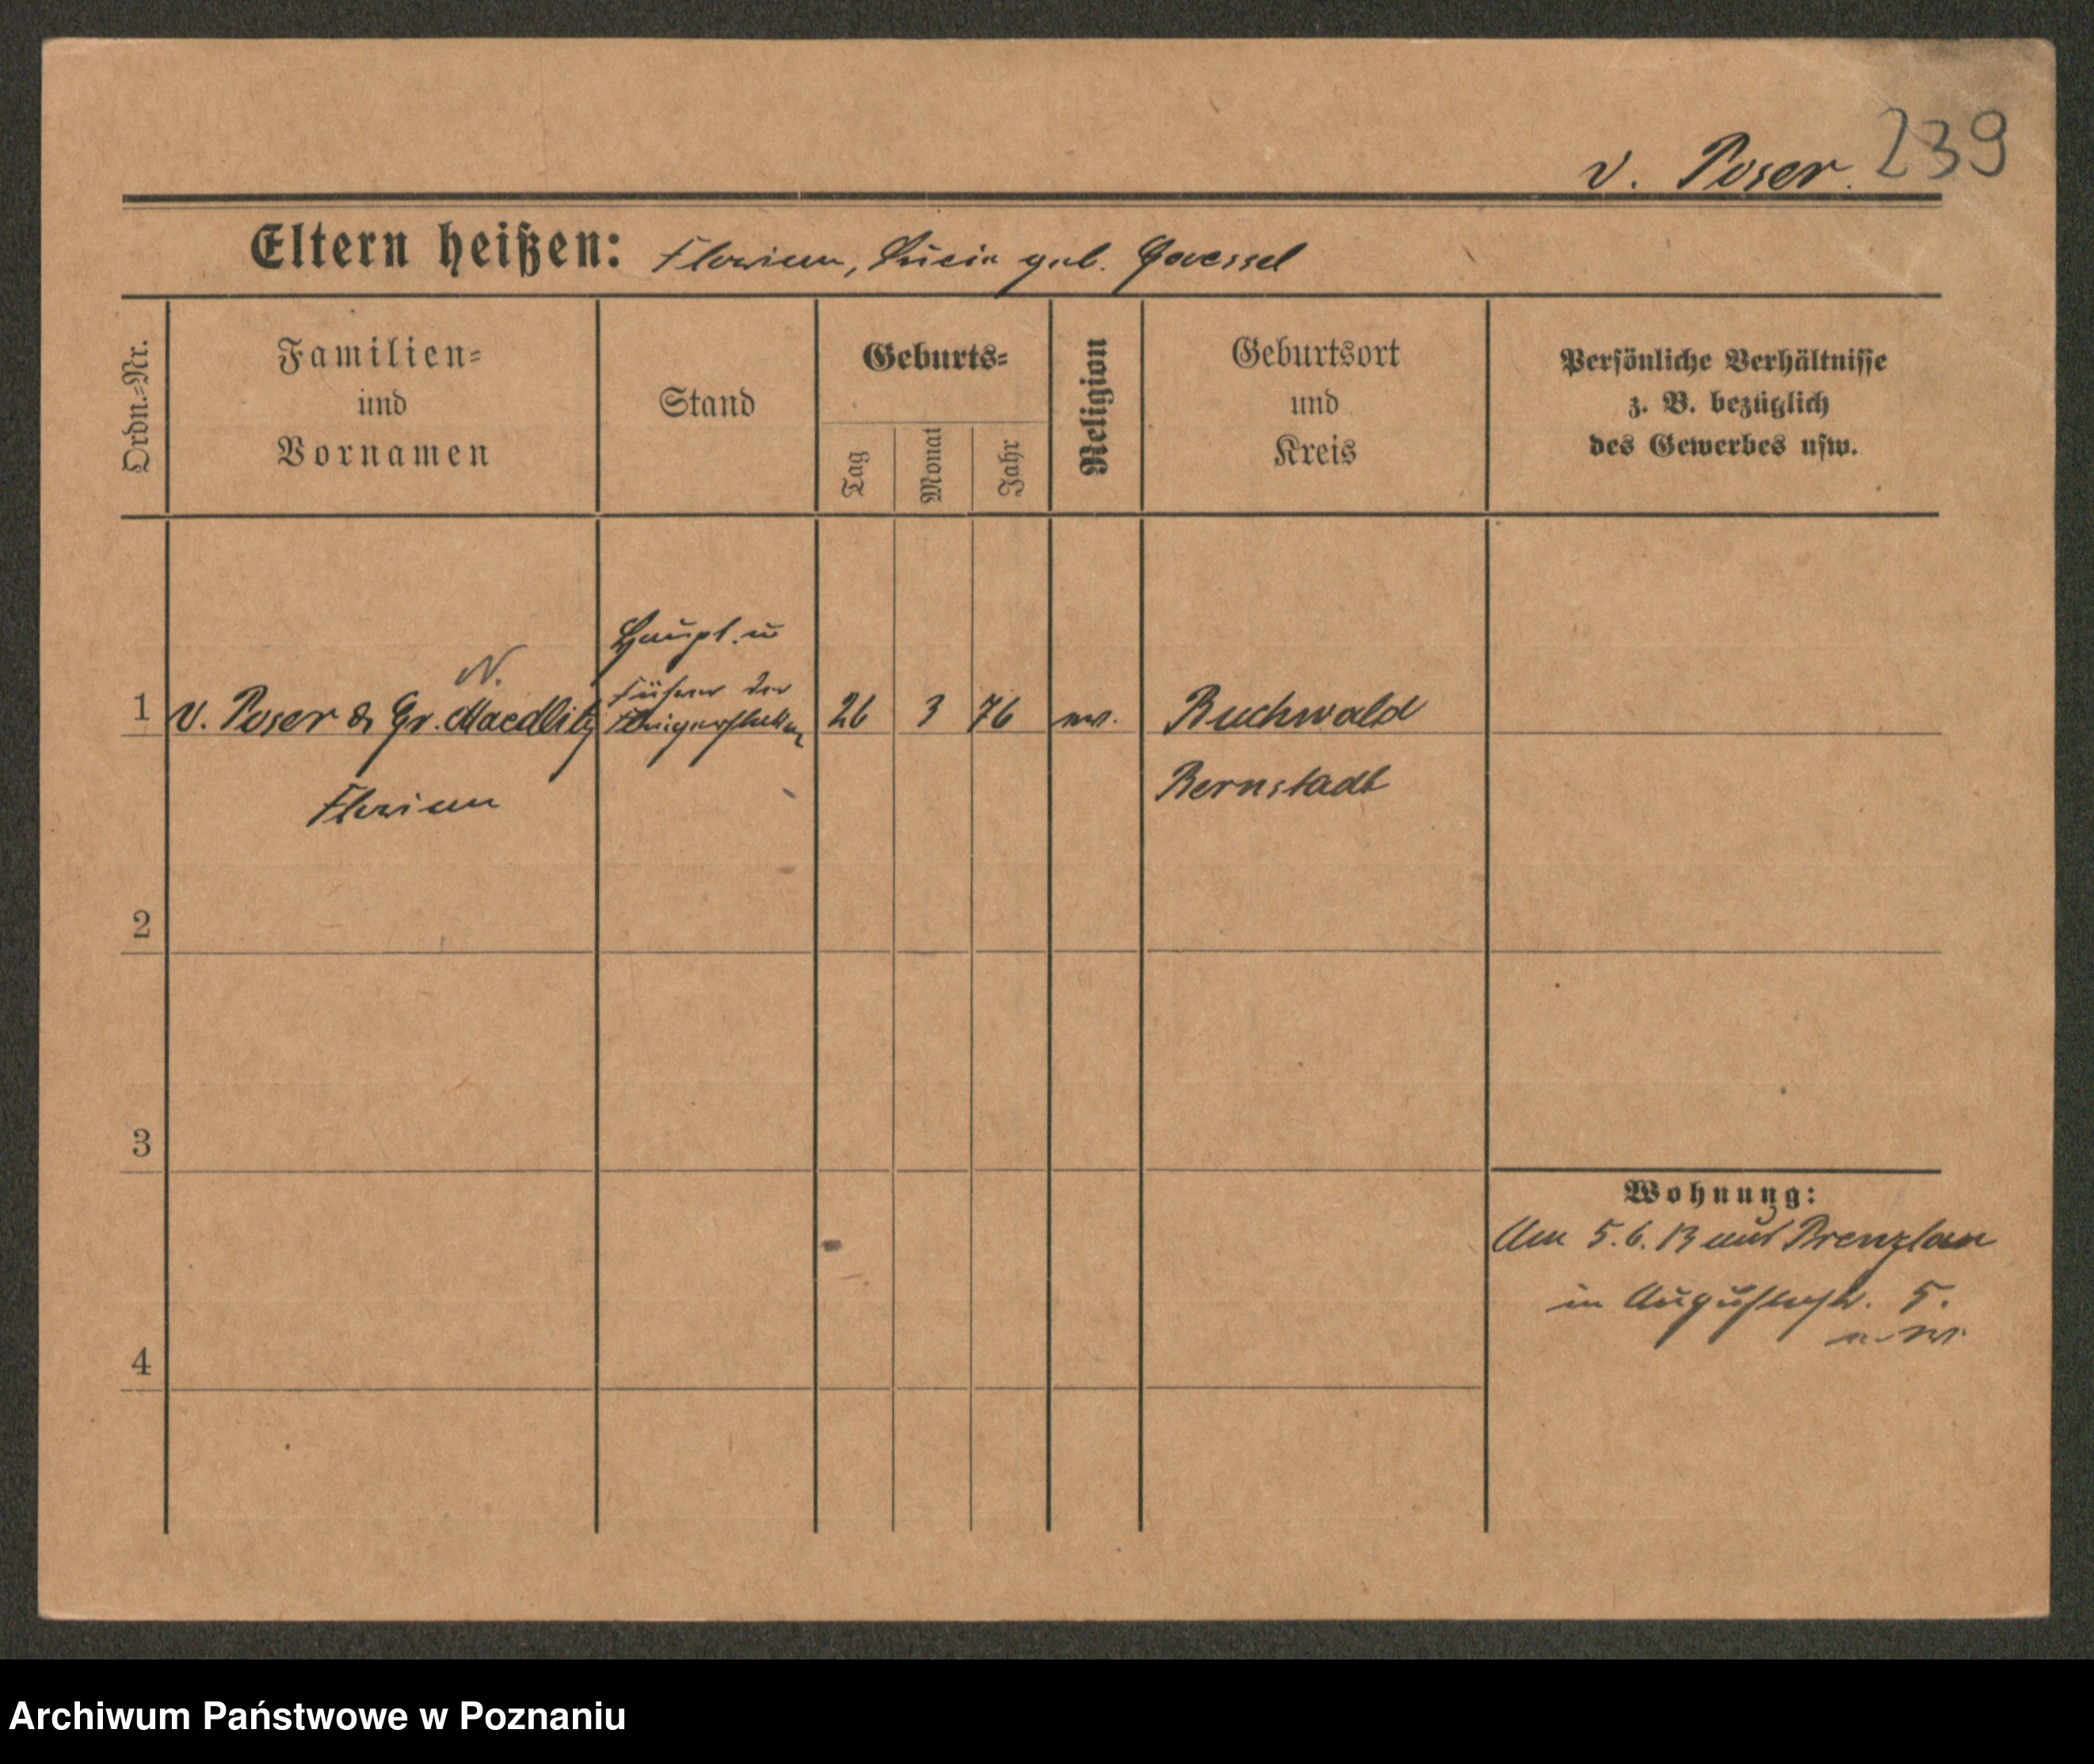 v. Poser. 239
Eltern heißen: Florian, Lucie geb. Goessel
Ordn.-Nr.
Familien-
und
Vornamen
Stand
Geburts-
Tag
Monat
Jahr
Religion
Geburtsort
und
Kreis
Persönliche Verhältnisse
z. B. bezüglich
des Gewerbes usw.
Haupt. u
N.
Führer der
1 v. Poser & Gr. Naedlitz 26 3 76 ev. Buchwald
Florian
Bernstadt
2
3
Wohnung:
Am 5.6.13 aus Prenzlau
in Augustastr. 5.
4
Archiwum Państwowe w Poznaniu